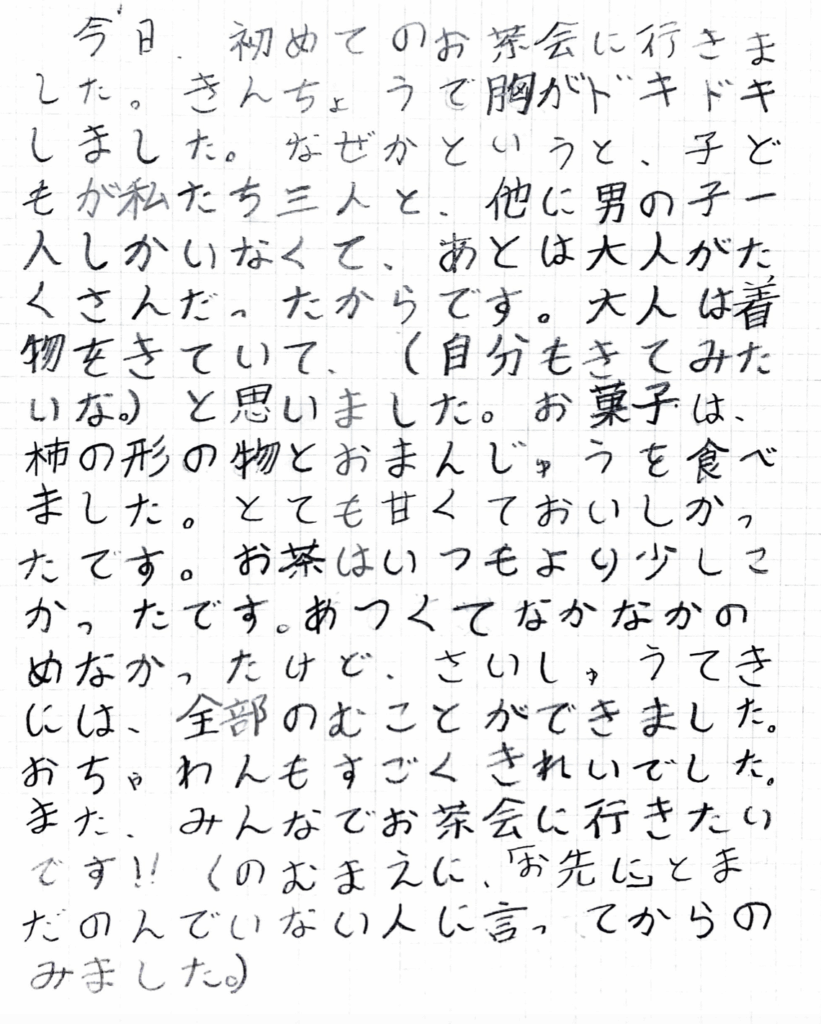 今日、初めてのお茶会に行きま
した。きんちょうで胸がドキドキ
しました。なぜかというと、子ど
もが私たち三人と、他に男の子一
人しかいなくて、あとは大人がた
くさんだったからです。大人は着
物をきていて、(自分もきてみた
いな。)と思いました。お菓子は、
柿の形の物とおまんじゅうを食べ
ました。とても甘くておいしかっ
たです。お茶はいつもより少しこ
かったです。あつくてなかなかの
めなかったけど、さいしゅうてき
には、全部のむことができました。
おちゃわんもすごくきれいでした。
また、みんなでお茶会に行きたい
です!!(のむまえに、「お先に」とま
だのんでいない人に言ってからの
みました。)